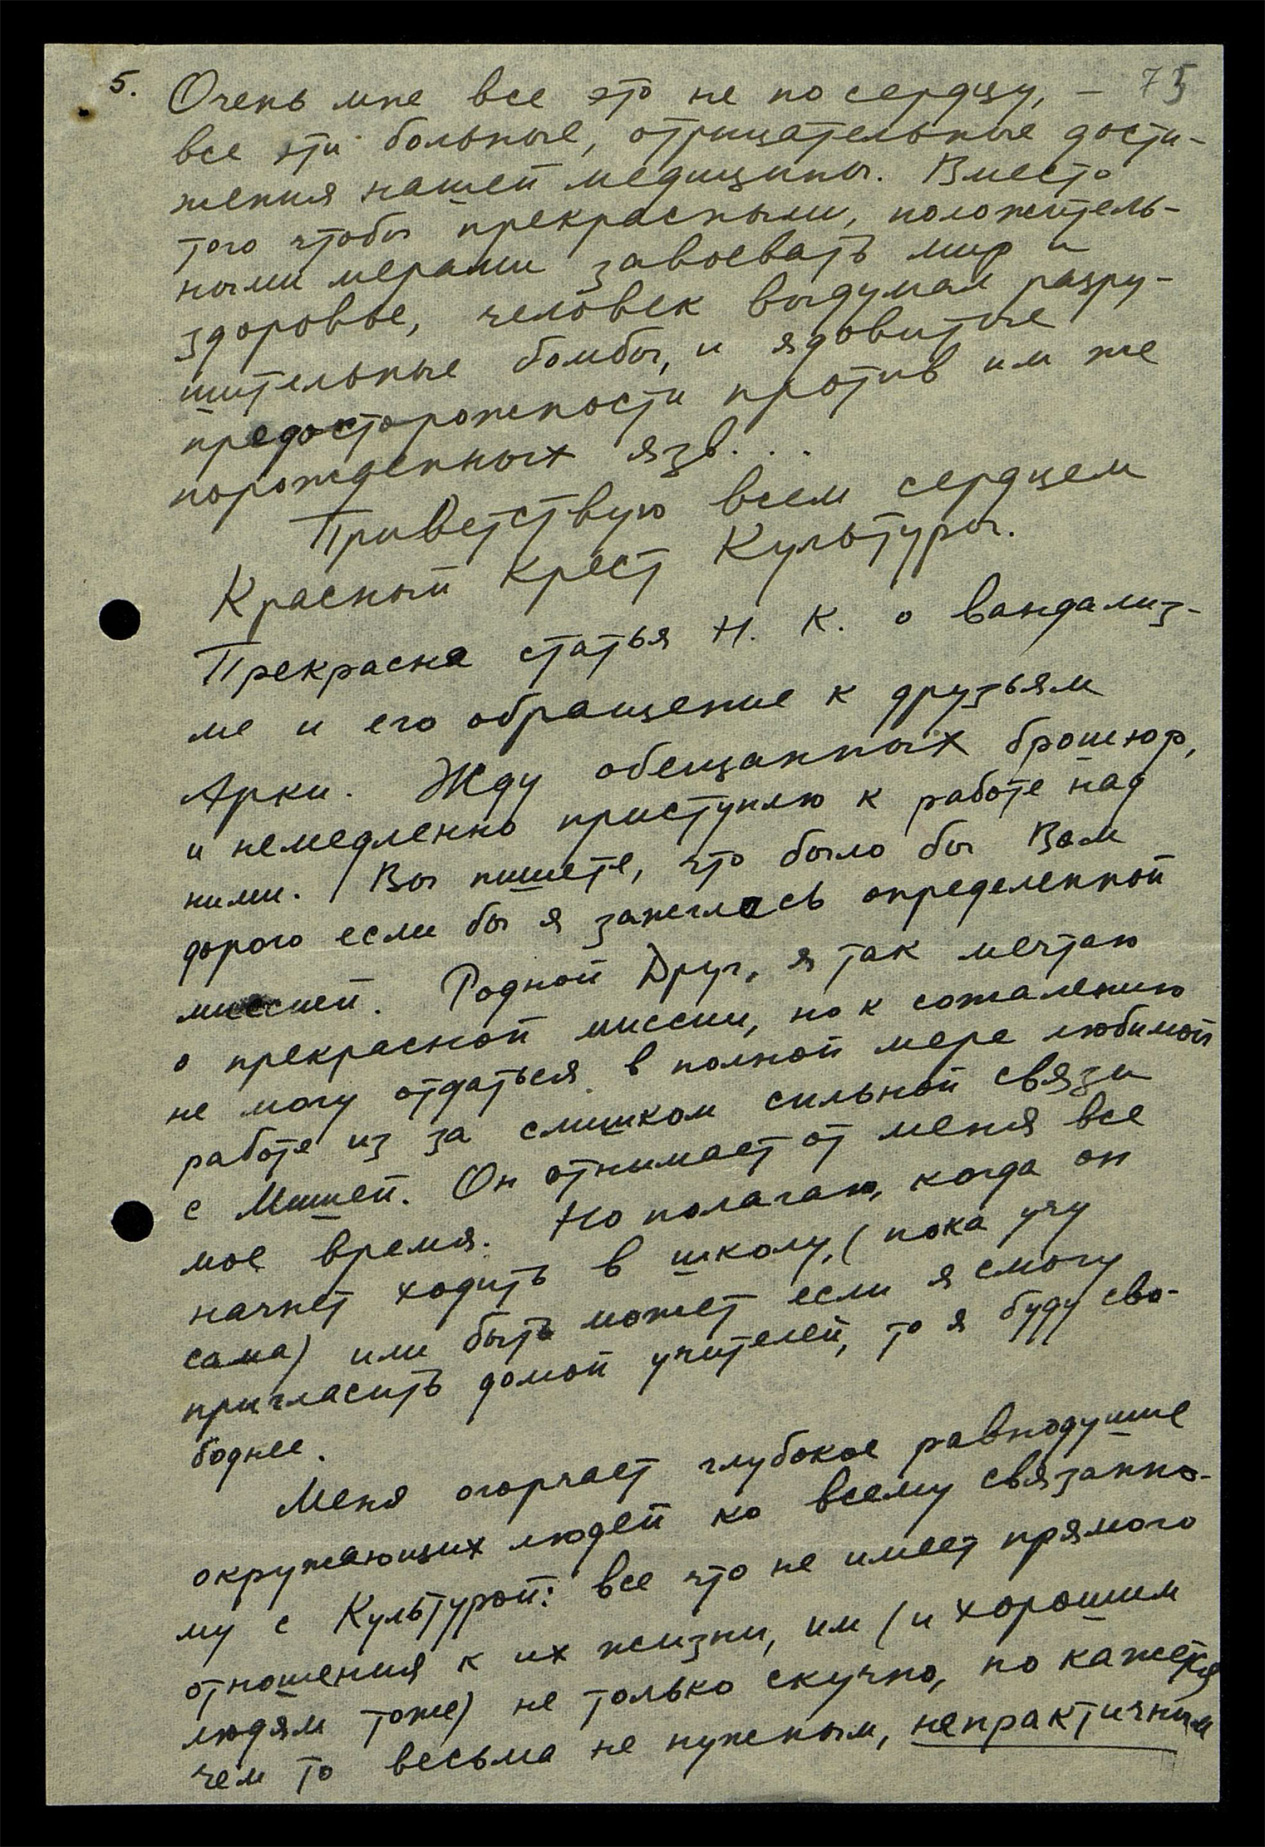 5. Очень мне все это не по сердцу, – 75
все эти больные, отрицательные дости-
жения нашей медицины. Вместо
того чтобы прекрасными, положитель-
ными мерами завоевать мир и
здоровье, человек выдумал разру-
шительные бомбы, и ядовитые
предосторожности против им же
порожденных язв. . .
Приветствую всем сердцем
Красный Крест Культуры.
Прекрасна статья Н. К. о вандализ-
ме и его обращение к друзьям
Арки. Жду обещанных брошюр,
и немедленно приступлю к работе над
ними. Вы пишете, что было бы Вам
дорого если бы я зажглась определенной
миссией. Родной Друг, я так мечтаю
о прекрасной миссии, но к сожалению
не могу отдаться в полной мере любимой
работе из за слишком сильной связи
с Мишей. Он отнимает от меня все
мое время. Но полагаю, когда он
начнет ходить в школу, (пока учу
сама) или быть может если я смогу
пригласить домой учителей, то я буду сво-
боднее.
Меня огорчает глубокое равнодушие
окружающих людей ко всему связанно-
му с Культурой: все что не имеет прямого
отношения к их жизни, им (и хорошим
людям тоже) не только скучно, но кажется
чем то весьма не нужным, непрактичным